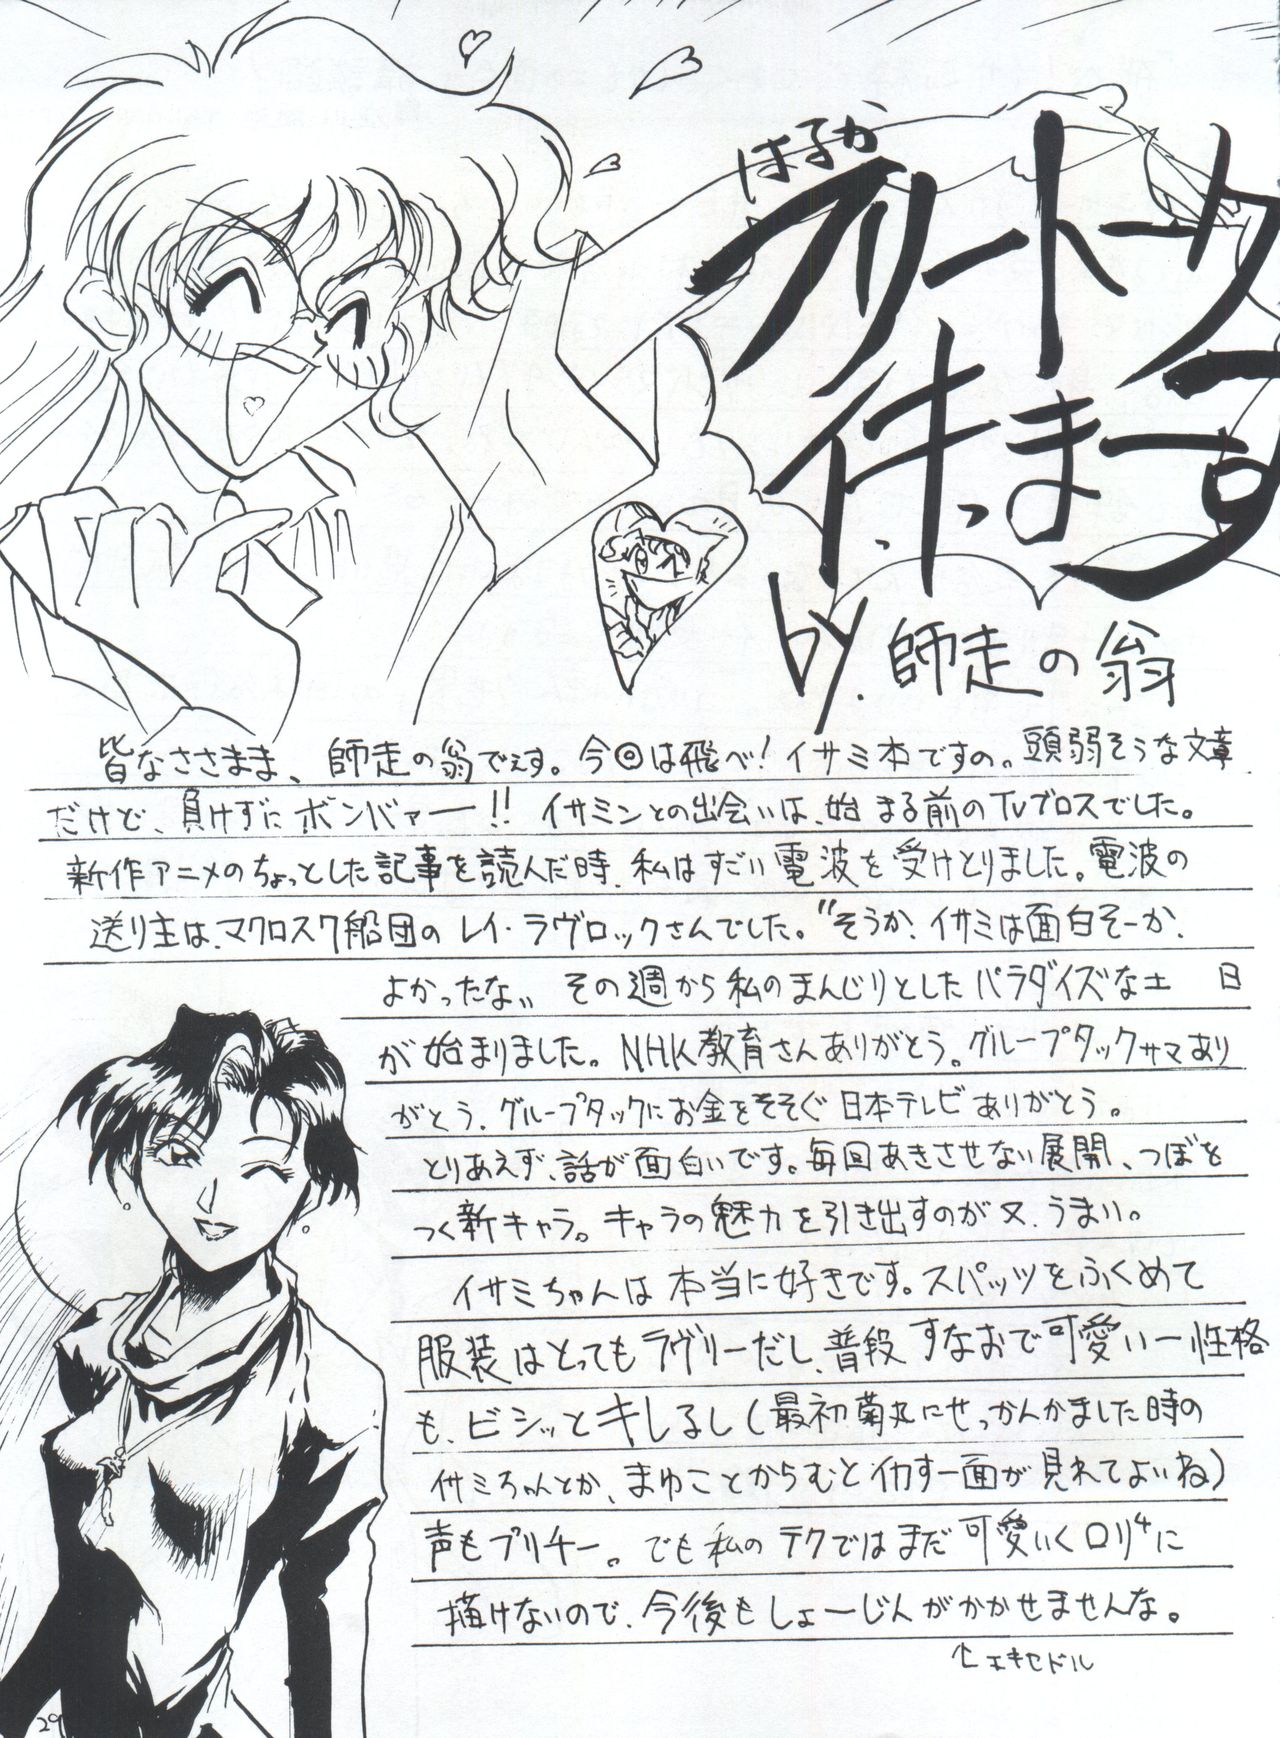 はるか
フリートーク
イキまーす
by.師走の翁
皆なささまま、師走の翁でぇす。今回は飛べ!イサミ本ですの。頭弱そうな文章
だけど、負けずにボンバァー!! イサミンとの出会いは、始まる前のTVブロスでした。
新作アニメのちょっとした記事を読んだ時、私はすごい電波を受けとりました。電波の
送り主は、マクロス7船団のレイ・ラヴロックさんでした。"そうか、イサミは面白そーか、
よかったな" その週から私のまんじりとしたパラダイズな土 日
が始まりました。NHK教育さんありがとう。グループタックサマあり
がとう、グループタックにお金をそそぐ日本テレビありがとう。
とりあえず、話が面白いです。毎回あきさせない展開、つぼを
つく新キャラ。キャラの魅力を引き出すのが又、うまい。
イサミちゃんは本当に好きです。スパッツをふくめて
服装はとってもラヴリーだし、普段すなおで可愛いー性格
も、ビシッとキレるし(最初菊丸にせっかんかました時の
イサミちゃんとか、まゆことからむとイカす一面が見れてよいね)
声もプリチー。でも私のテクではまだ可愛いくロリ4に
描けないので、今後もしょーじんがかかせませんな。
↑エキセドル
29